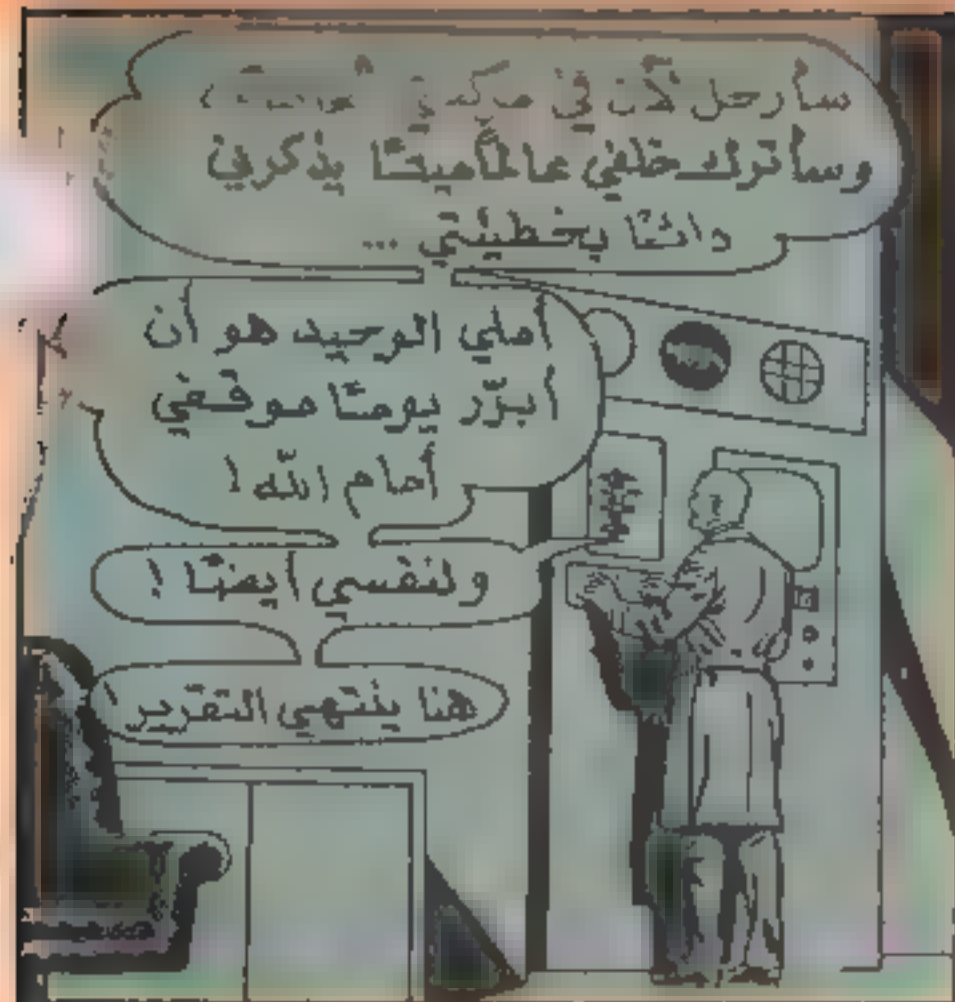 سأرحل لآن في
وسأترك خلفي عالمًا ميتًا يذكرني
دائمًا بخطيئتي ...
أملي الوحيد هو أن
أبرّر يومًا موقفي
أمام الله !
ولنفسي أيضًا !
هنا ينتهي التقرير !